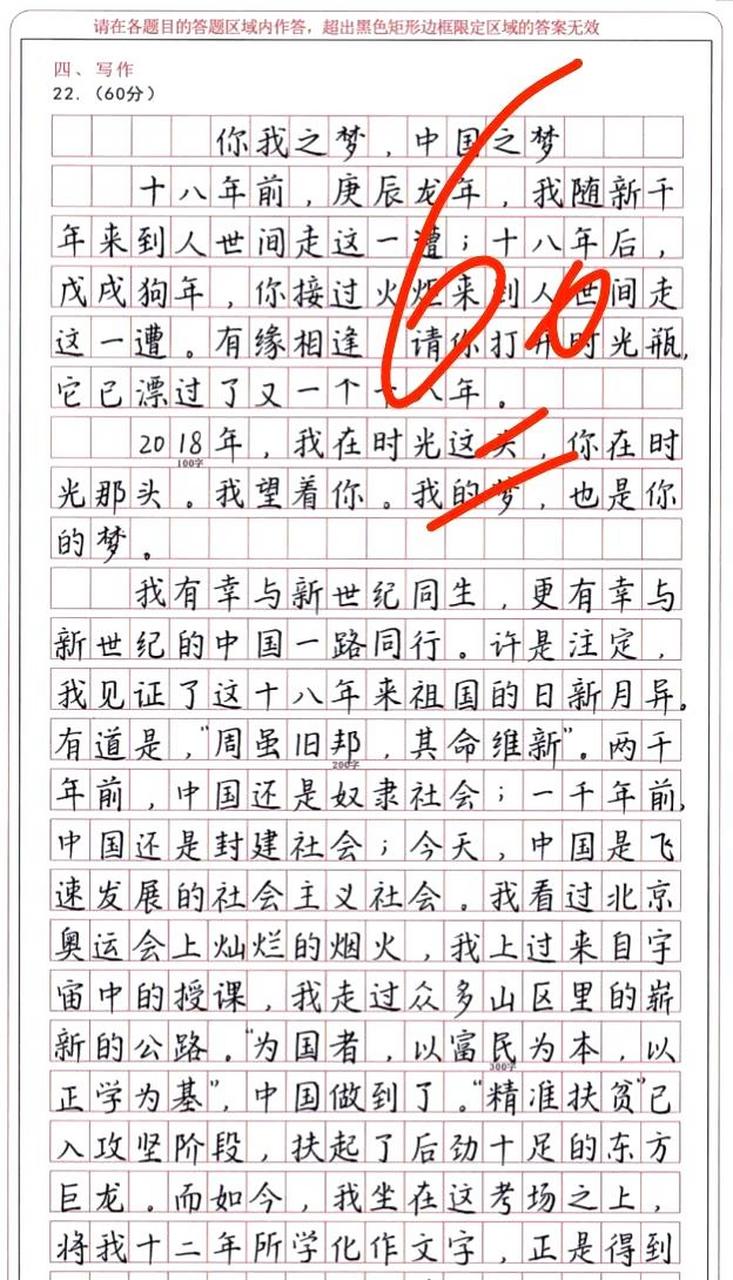 请在各题目的答题区域内作答，超出黑色矩形边框限定区域的答案无效
四、写作
22.（60分）
你我之梦，中国之梦
十八年前，庚辰龙年，我随新千
年来到人世间走这一遭；十八年后，
戊戌狗年，你接过火炬来到人世间走
这一遭。有缘相逢 请你打开时光瓶，
它已漂过了又一个十八年。
2018年，我在时光这头，你在时
100字
光那头。我望着你。我的梦，也是你
的梦。
我有幸与新世纪同生，更有幸与
新世纪的中国一路同行。许是注定，
我见证了这十八年来祖国的日新月异。
有道是，“周虽旧邦，其命维新”。两千
200字
年前，中国还是奴隶社会；一千年前，
中国还是封建社会；今天，中国是飞
速发展的社会主义社会。我看过北京
奥运会上灿烂的烟火，我上过来自宇
宙中的授课，我走过众多山区里的崭
新的公路。“为国者，以富民为本，以
300字
正学为基”，中国做到了。“精准扶贫”已
入攻坚阶段，扶起了后劲十足的东方
巨龙。而如今，我坐在这考场之上，
将我十二年所学化作文字，正是得到
60